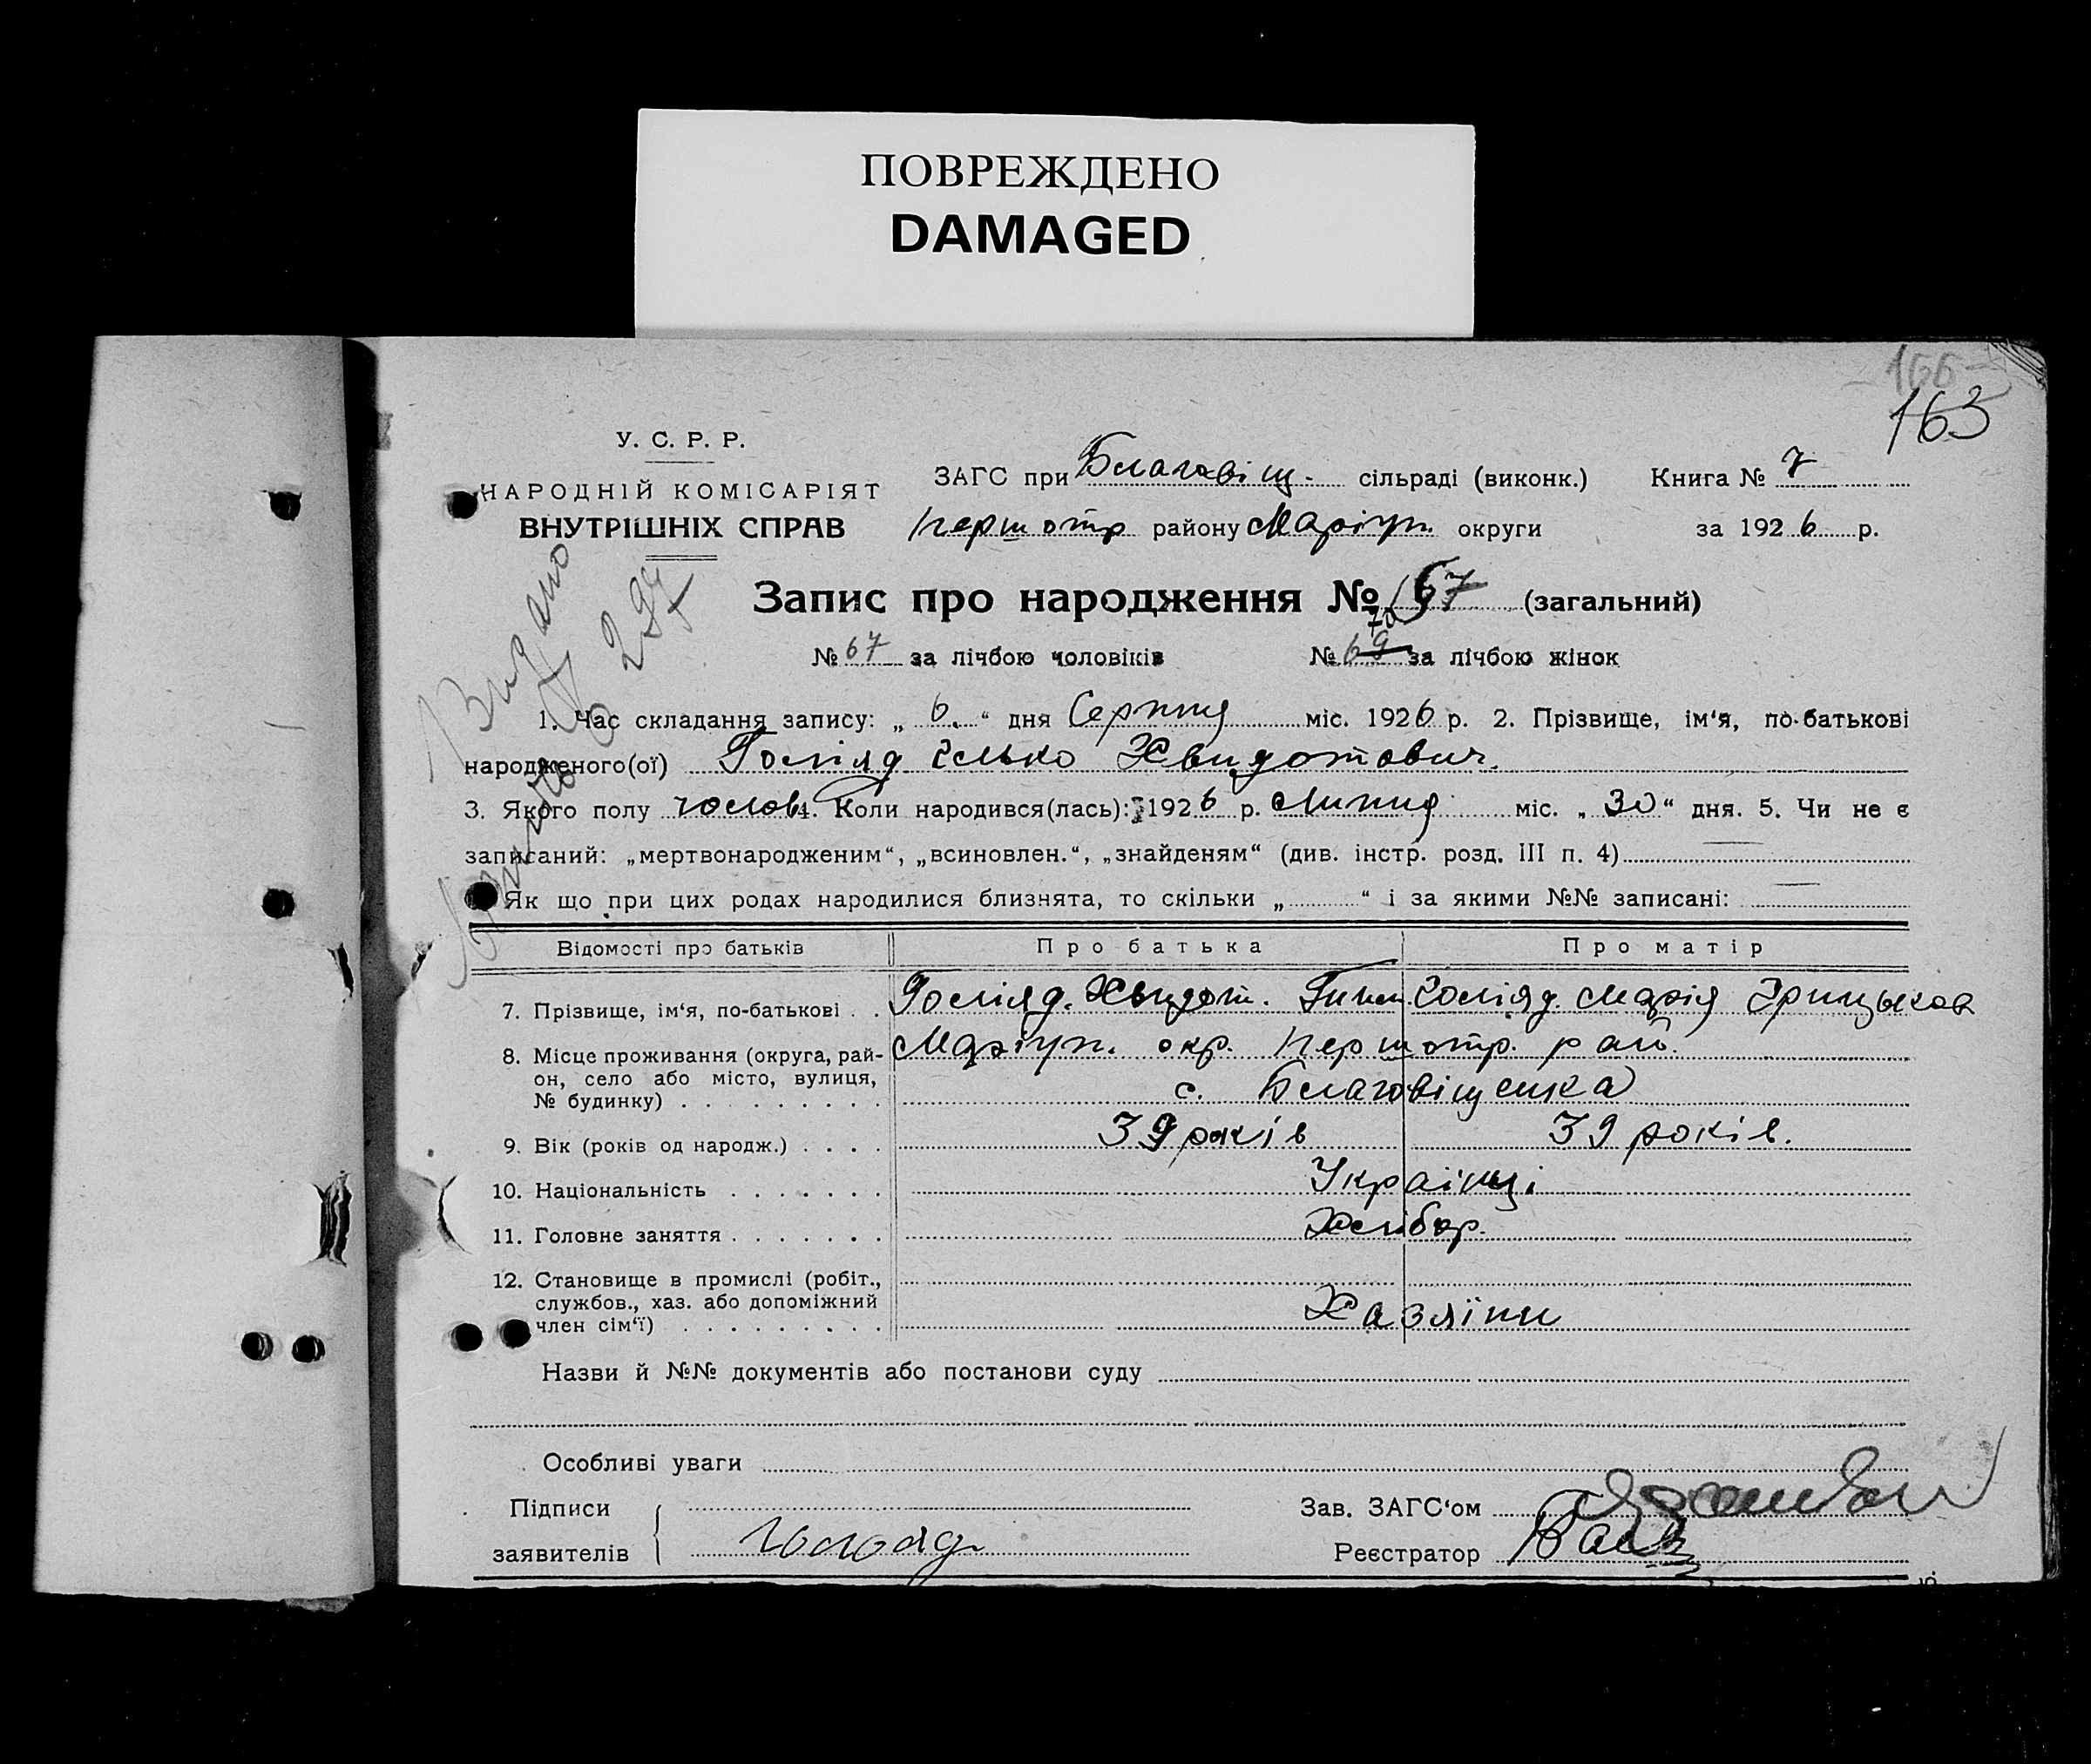 ПОВРЕЖДЕНО
DAMAGED
166
163
У. С. Р. Р.
НАРОДНІЙ КОМІСАРІЯТ
ВНУТРІШНІХ СПРАВ
ЗАГС при Благовіщ. сільраді (виконк.) Книга № 7
Першотр району Маріуп. округи за 1926 р.
Видано
297
Запис про народження № 167 (загальний)
№ 67 за лічбою чоловіків № 69 70 за лічбою жінок
1. Час складання запису: „ 6. “ дня Серпня міс. 1926 р. 2. Прізвище, ім‘я, по-батькові
народженого(ої) Голіяд Ілько Хвидотович.
3. Якого полу чолов. 4. Коли народився(лась): 1926 р. Липня міс. „ 30 “ дня. 5. Чи не є
записаний: „мертвонародженим“, „всиновлен.“, „знайденям“ (див. інстр. розд. III п. 4)
Як що при цих родах народилися близнята, то скільки „ “ і за якими №№ записані:
Відомості про батьків Про батька Про матір
7. Прізвище, ім‘я, по-батькові . . Голіяд. Хвидот. Голіяд. Марія Грицьков
8. Місце проживання (округа, рай- Маріуп. окр. Першотр. рай.
он, село або місто, вулиця, с. Благовіщенка
№ будинку) . . . . . . . . .
9. Вік (років од народж.) . . . . 39 років 39 років.
10. Національність . . . . . . . Українці
11. Головне заняття . . . . . . . Хлібор.
12. Становище в промислі (робіт.,
службов., хаз. або допоміжний Хазяїни
член сім‘ї) . . . . . . . . .
Назви й №№ документів або постанови суду
Особливі уваги
Підписи Зав. ЗАГС‘ом
заявителів Реєстратор